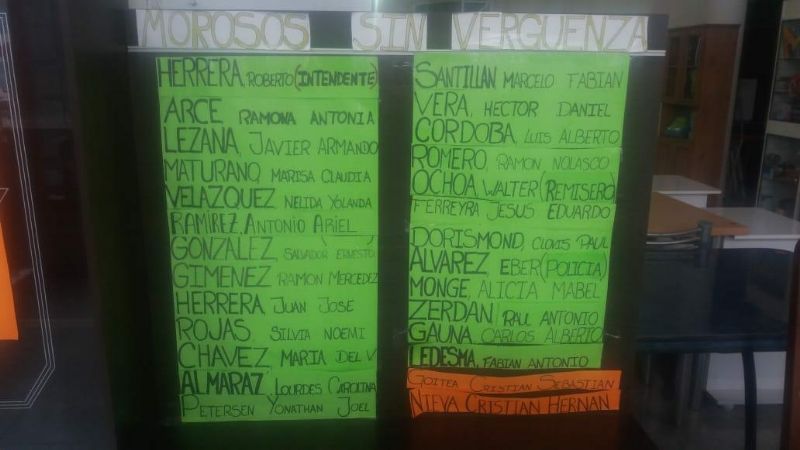 MOROSOS SIN VERGUENZA
HERRERA ROBERTO (INTENDENTE)
ARCE RAMONA ANTONIA
LEZANA, JAVIER ARMANDO
MATURANO, MARISA CLAUDIA
VELAZQUEZ NELIDA YOLANDA
RAMIREZ, ANTONIO ARIEL
GONZALEZ, SALVADOR ERNESTO
GIMENEZ RAMON MERCEDEZ
HERRERA JUAN JOSE
ROJAS SILVIA NOEMI
CHAVEZ, MARIA DEL V
ALMARAZ, LOURDES CAROLINA
PETERSEN YONATHAN JOEL
SANTILLAN MARCELO FABIAN
VERA, HECTOR DANIEL
CORDOBA, LUIS ALBERTO
ROMERO RAMON NOLASCO
OCHOA, WALTER (REMISERO)
FERREYRA JESUS EDUARDO
DORISMOND, CLOVIS PAUL
ALVAREZ EBER (POLICIA)
MONGE, ALICIA MABEL
ZERDAN RAUL ANTONIO
GAUNA CARLOS ALBERTO
LEDESMA, FABIAN ANTONIO
GOITEA CRISTIAN SEBASTIAN
NIEVA CRISTIAN HERNAN